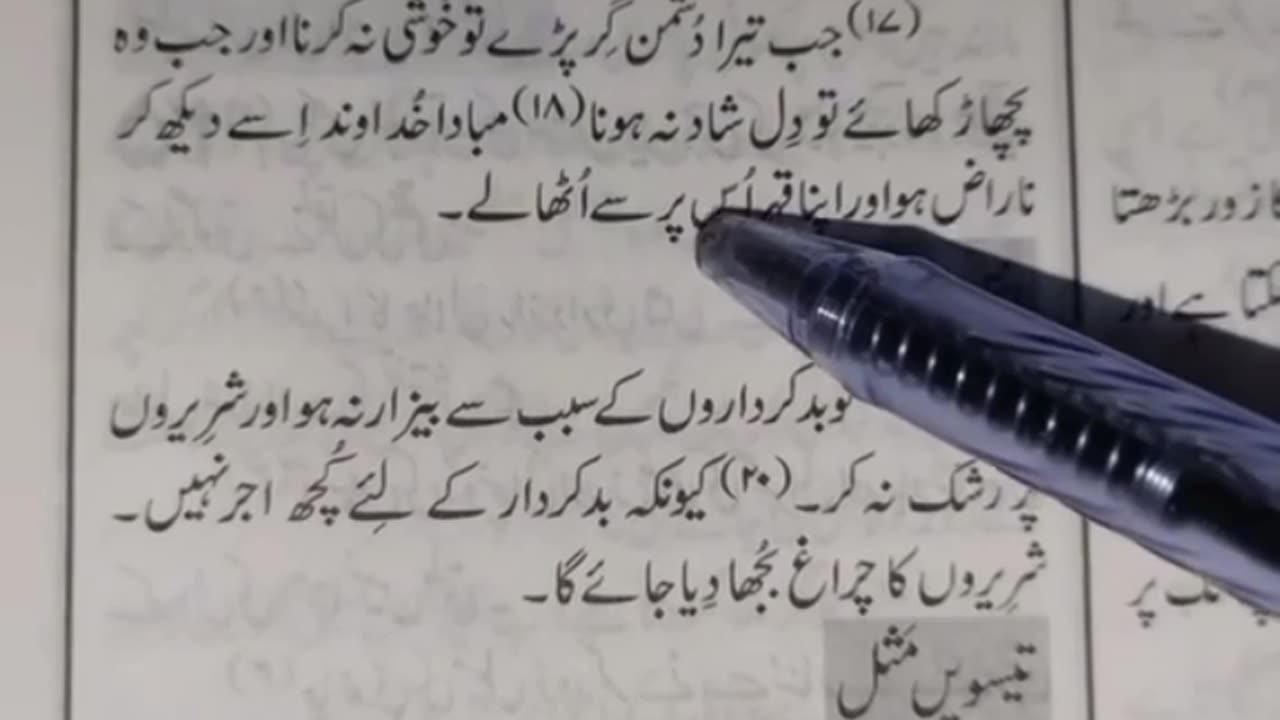 (۱۷) جب تیرا دُشمن گِر پڑے تو خُوشی نہ کرنا اور جب وہ
پچھاڑ کھائے تو دِل شاد نہ ہونا (۱۸) مبادا خُداوند اِسے دیکھ کر
ناراض ہو اور اپنا قہر اُس پر سے اُٹھا لے۔
تو بدکرداروں کے سبب سے بیزار نہ ہو اور شرِیروں
پر رشک نہ کر۔ (۲۰) کیونکہ بدکردار کے لِئے کُچھ اجر نہیں۔
شرِیروں کا چراغ بُجھا دِیا جائے گا۔
تیسویں مَثل
زور بڑھتا
ہے اور
پر